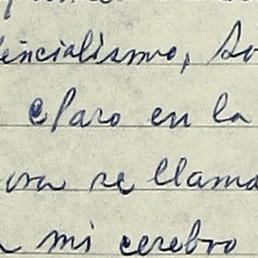 encialismo, So
claro en la
ora se llama
mi cerebro